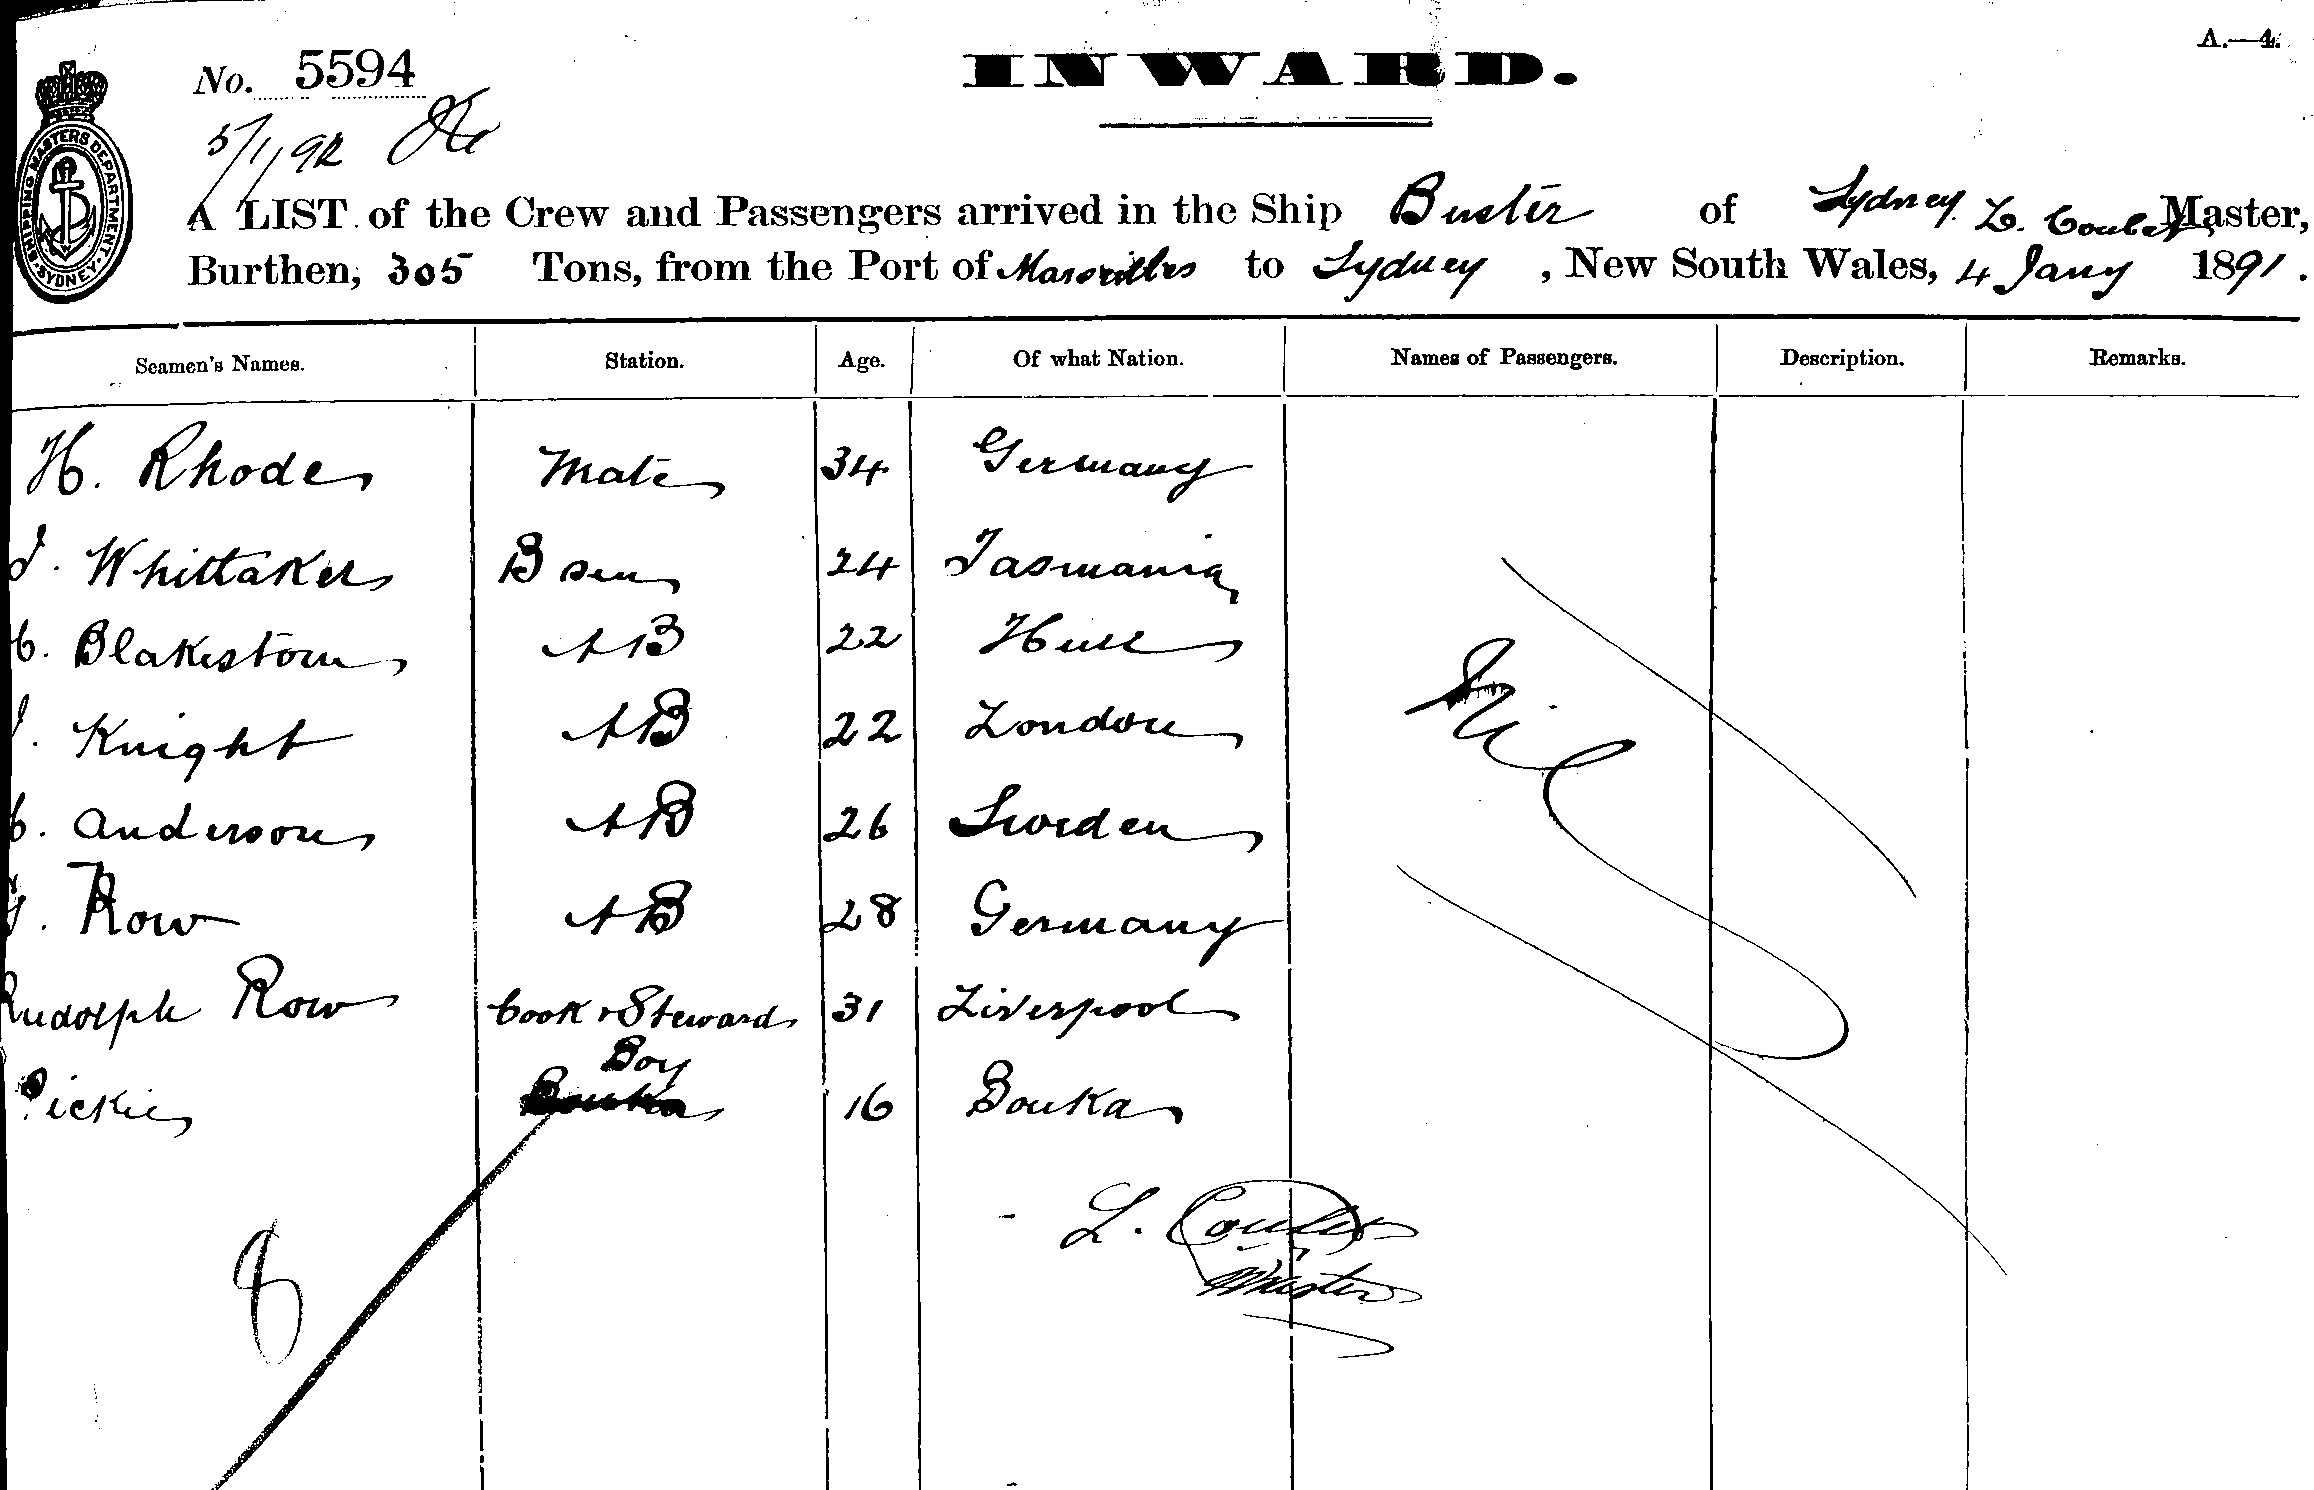 A.—4.
No. 5594
INWARD.
5/1/92
SHIPPING MASTERS DEPARTMENT. SYDNEY.
A LIST of the Crew and Passengers arrived in the Ship Buster of Sydney L. Coulter Master,
Burthen, 305 Tons, from the Port of Marseilles to Sydney, New South Wales, 4 Jany 1891.
Seamen's Names. Station. Age. Of what Nation. Names of Passengers. Description. Remarks.
H. Rhode Mate 34 Germany
J. Whittaker Bsen 24 Tasmania
Blakestone AB 22 Hull
Knight AB 22 London
Anderson AB 26 Sweden
Row AB 28 Germany
Rudolph Row Cook & Steward 31 Liverpool
Dickie Bouka Boy 16 Bouka
Nil
8
L. Coulter
Master